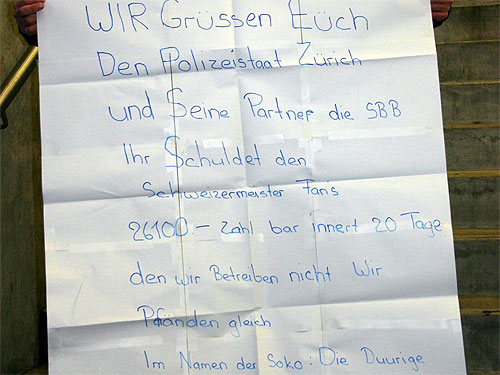 WIR Grüssen Eüch
Den Polizeistaat Zürich
und Seine Partner die SBB
Ihr Schuldet den
Schweizermeister Fans
26100.- Zahl bar innert 20 Tage
den wir Betreiben nicht Wir
Pfänden gleich
Im Namen der Soko: Die Duurige